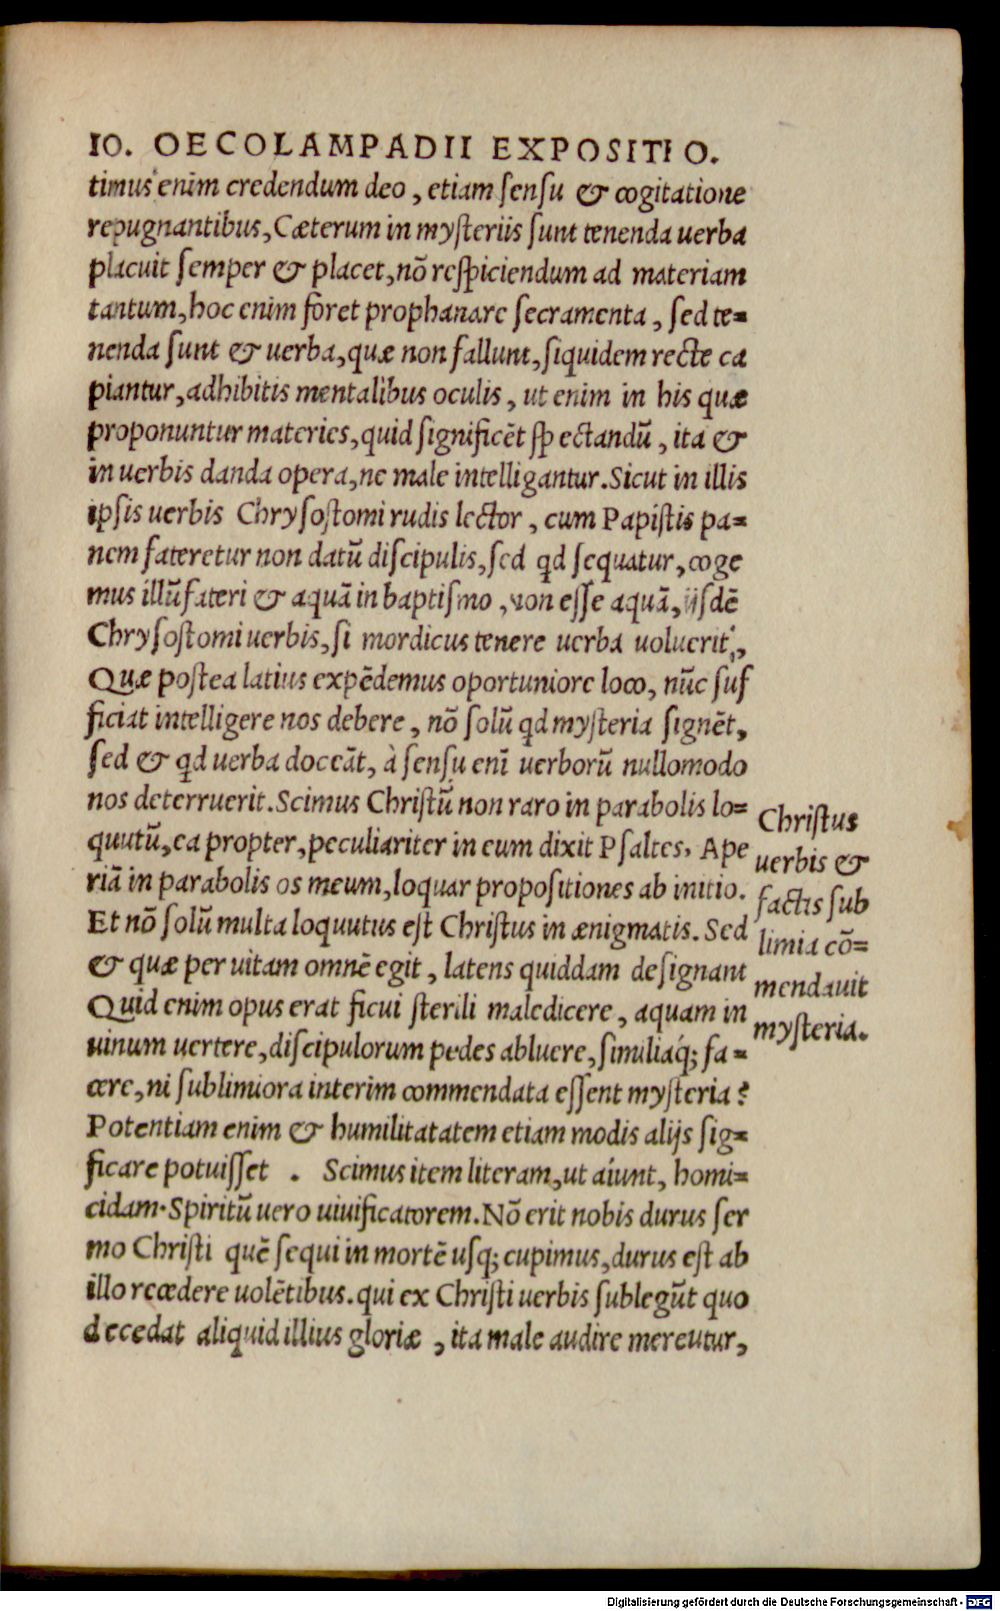 IO. OECOLAMPADII EXPOSITIO.
timus enim credendum deo, etiam sensu & cogitatione
repugnantibus, Cæterum in mysteriis sunt tenenda uerba
placuit semper & placet, nõ respiciendum ad materiam
tantum, hoc enim foret prophanare secramenta, sed te=
nenda sunt & uerba, quæ non fallunt, siquidem recte ca
piantur, adhibitis mentalibus oculis, ut enim in his quæ
proponuntur materies, quid significẽt spectandũ, ita &
in uerbis danda opera, ne male intelligantur. Sicut in illis
ipsis uerbis Chrysostomi rudis lector, cum Papistis pa=
nem fateretur non datũ discipulis, sed qd sequatur, coge
mus illũ fateri & aquã in baptismo, non esse aquã, iisdẽ
Chrysostomi uerbis, si mordicus tenere uerba uoluerit,
Quæ postea latius expẽdemus oportuniore loco, nũc suf
ficiat intelligere nos debere, nõ solũ qd mysteria signẽt,
sed & qd uerba doceãt, à sensu enĩ uerborũ nullomodo
nos deterruerit. Scimus Christũ non raro in parabolis lo=
quutũ, ea propter, peculiariter in eum dixit Psaltes, Ape
riã in parabolis os meum, loquar propositiones ab initio.
Et nõ solũ multa loquutus est Christus in ænigmatis. Sed
& quæ per uitam omnẽ egit, latens quiddam designant
Quid enim opus erat ficui sterili maledicere, aquam in
uinum uertere, discipulorum pedes abluere, similiaq́; fa=
cere, ni sublimiora interim commendata essent mysteria?
Potentiam enim & humilitatatem etiam modis alijs sig=
ficare potuisset . Scimus item literam, ut aiunt, homi=
cidam. Spiritũ uero uiuificatorem. Nõ erit nobis durus ser
mo Christi quẽ sequi in mortẽ usq; cupimus, durus est ab
illo recedere uolẽtibus. qui ex Christi uerbis sublegũt quo
decedat aliquid illius gloriæ, ita male audire mereutur,
Christus
uerbis &
factis sub
limia cõ=
mendauit
mysteria.
Digitalisierung gefördert durch die Deutsche Forschungsgemeinschaft - DFG